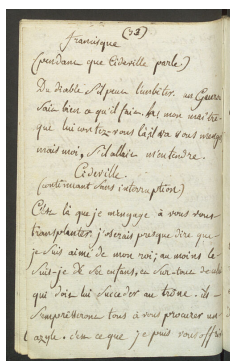 (32)
francisque
(pendant que Cideville parle.)
Du diable s'il peut l'imbiter. un Gueux
Sait bien ce qu'il fait. mon maître
que lui contez-vous là, il va vous
mais moi, s'il allait m'entendre.
Cideville.
(continuant sans interruption)
C'est là que je m'engage à vous
transplanter. j'oserais presque dire que
je suis aimé de mon roi; au moins le
suis-je de ses enfans, et sur-tout de celui
qui doit lui succéder au trône. ils
s'empresseront tous à vous procurer un
azyle. c'en ce que je puis vous offrir